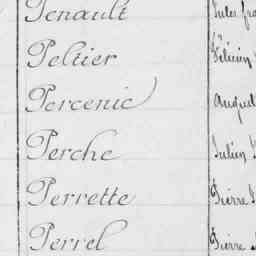 Penault Jules
Peltier Félicien
Percenie August
Perche Julien
Perrette Pierre
Perrel Pierre